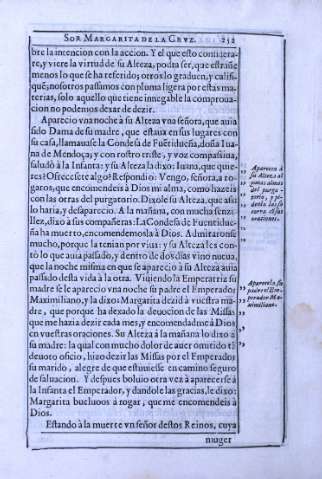 SOR MARGARITA DE LA CRVZ. 252
bre la intencion con la accion. Y el que esto considera-
re, y viere la virtud de su Alteza, podra ser, que estrañe
menos lo que se ha referido; otros lo graduen, y califi-
que, nosotros passamos con pluma ligera por estas ma-
terias, solo aquello que tiene innegable la comproua-
cion no podemos dexar de dezir.
Aparecio vna noche à su Alteza vna señora, que auia
sido Dama de su madre, que estaua en sus lugares con
su casa, llamauase la Condesa de Fuertidueña, doña Iua-
na de Mendoça; y con rostro triste, y voz compassiua,
saludò à la Infanta; y su Alteza la dixo: Iuana, que quie-
res? Ofrecesete algo? Respondio: Vengo, señora, a ro-
garos, que encomendeis à Dios mi alma, como hazeis
con las otras del purgatorio. Dixole su Alteza, que assi
lo haria, y desaparecio. A la mañana, con mucha senzi-
llez, dixo à sus compañeras: La Condesa de Fuentidue-
ña ha muerto, encomendemosla à Dios. Admiraronse
mucho, porque la tenian por viua: y su Alteza les con-
tò lo que auia passado, y dentro de dos dias vino nueua,
que la noche misma en que se apareciò à su Alteza auia
passado desta vida à la otra. Viuiendo la Emperatriz su
madre se le aparecio vna noche su padre el Emperador
Maximiliano, y la dixo: Margarita dezid à vuestra ma-
dre, que porque ha dexado la deuocion de las Missas
que me hazia dezir cada mes, y encomendadme à Dios
en vuestras oraciones. Su Alteza à la mañana lo dixo à
su madre: la qual con mucho dolor de auer omitido tã
deuoto oficio, hizo dezir las Missas por el Emperador
su marido, alegre de que estuuiesse en camino seguro
de saluacion. Y despues boluio otra vez à aparecerse à
la Infanta el Emperador, y dandole las gracias, le dixo:
Margarita bueluoos à rogar, que me encomendeis à
Dios.
Estando à la muerte vn señor destos Reinos, cuya
muger
Aparecen à
su Alteza al
gunas almas
del purga-
torio, y pi-
denle las so-
corra cõ sus
oraciones.
Aparecele su
padre el Em-
perador Ma-
ximiliano.